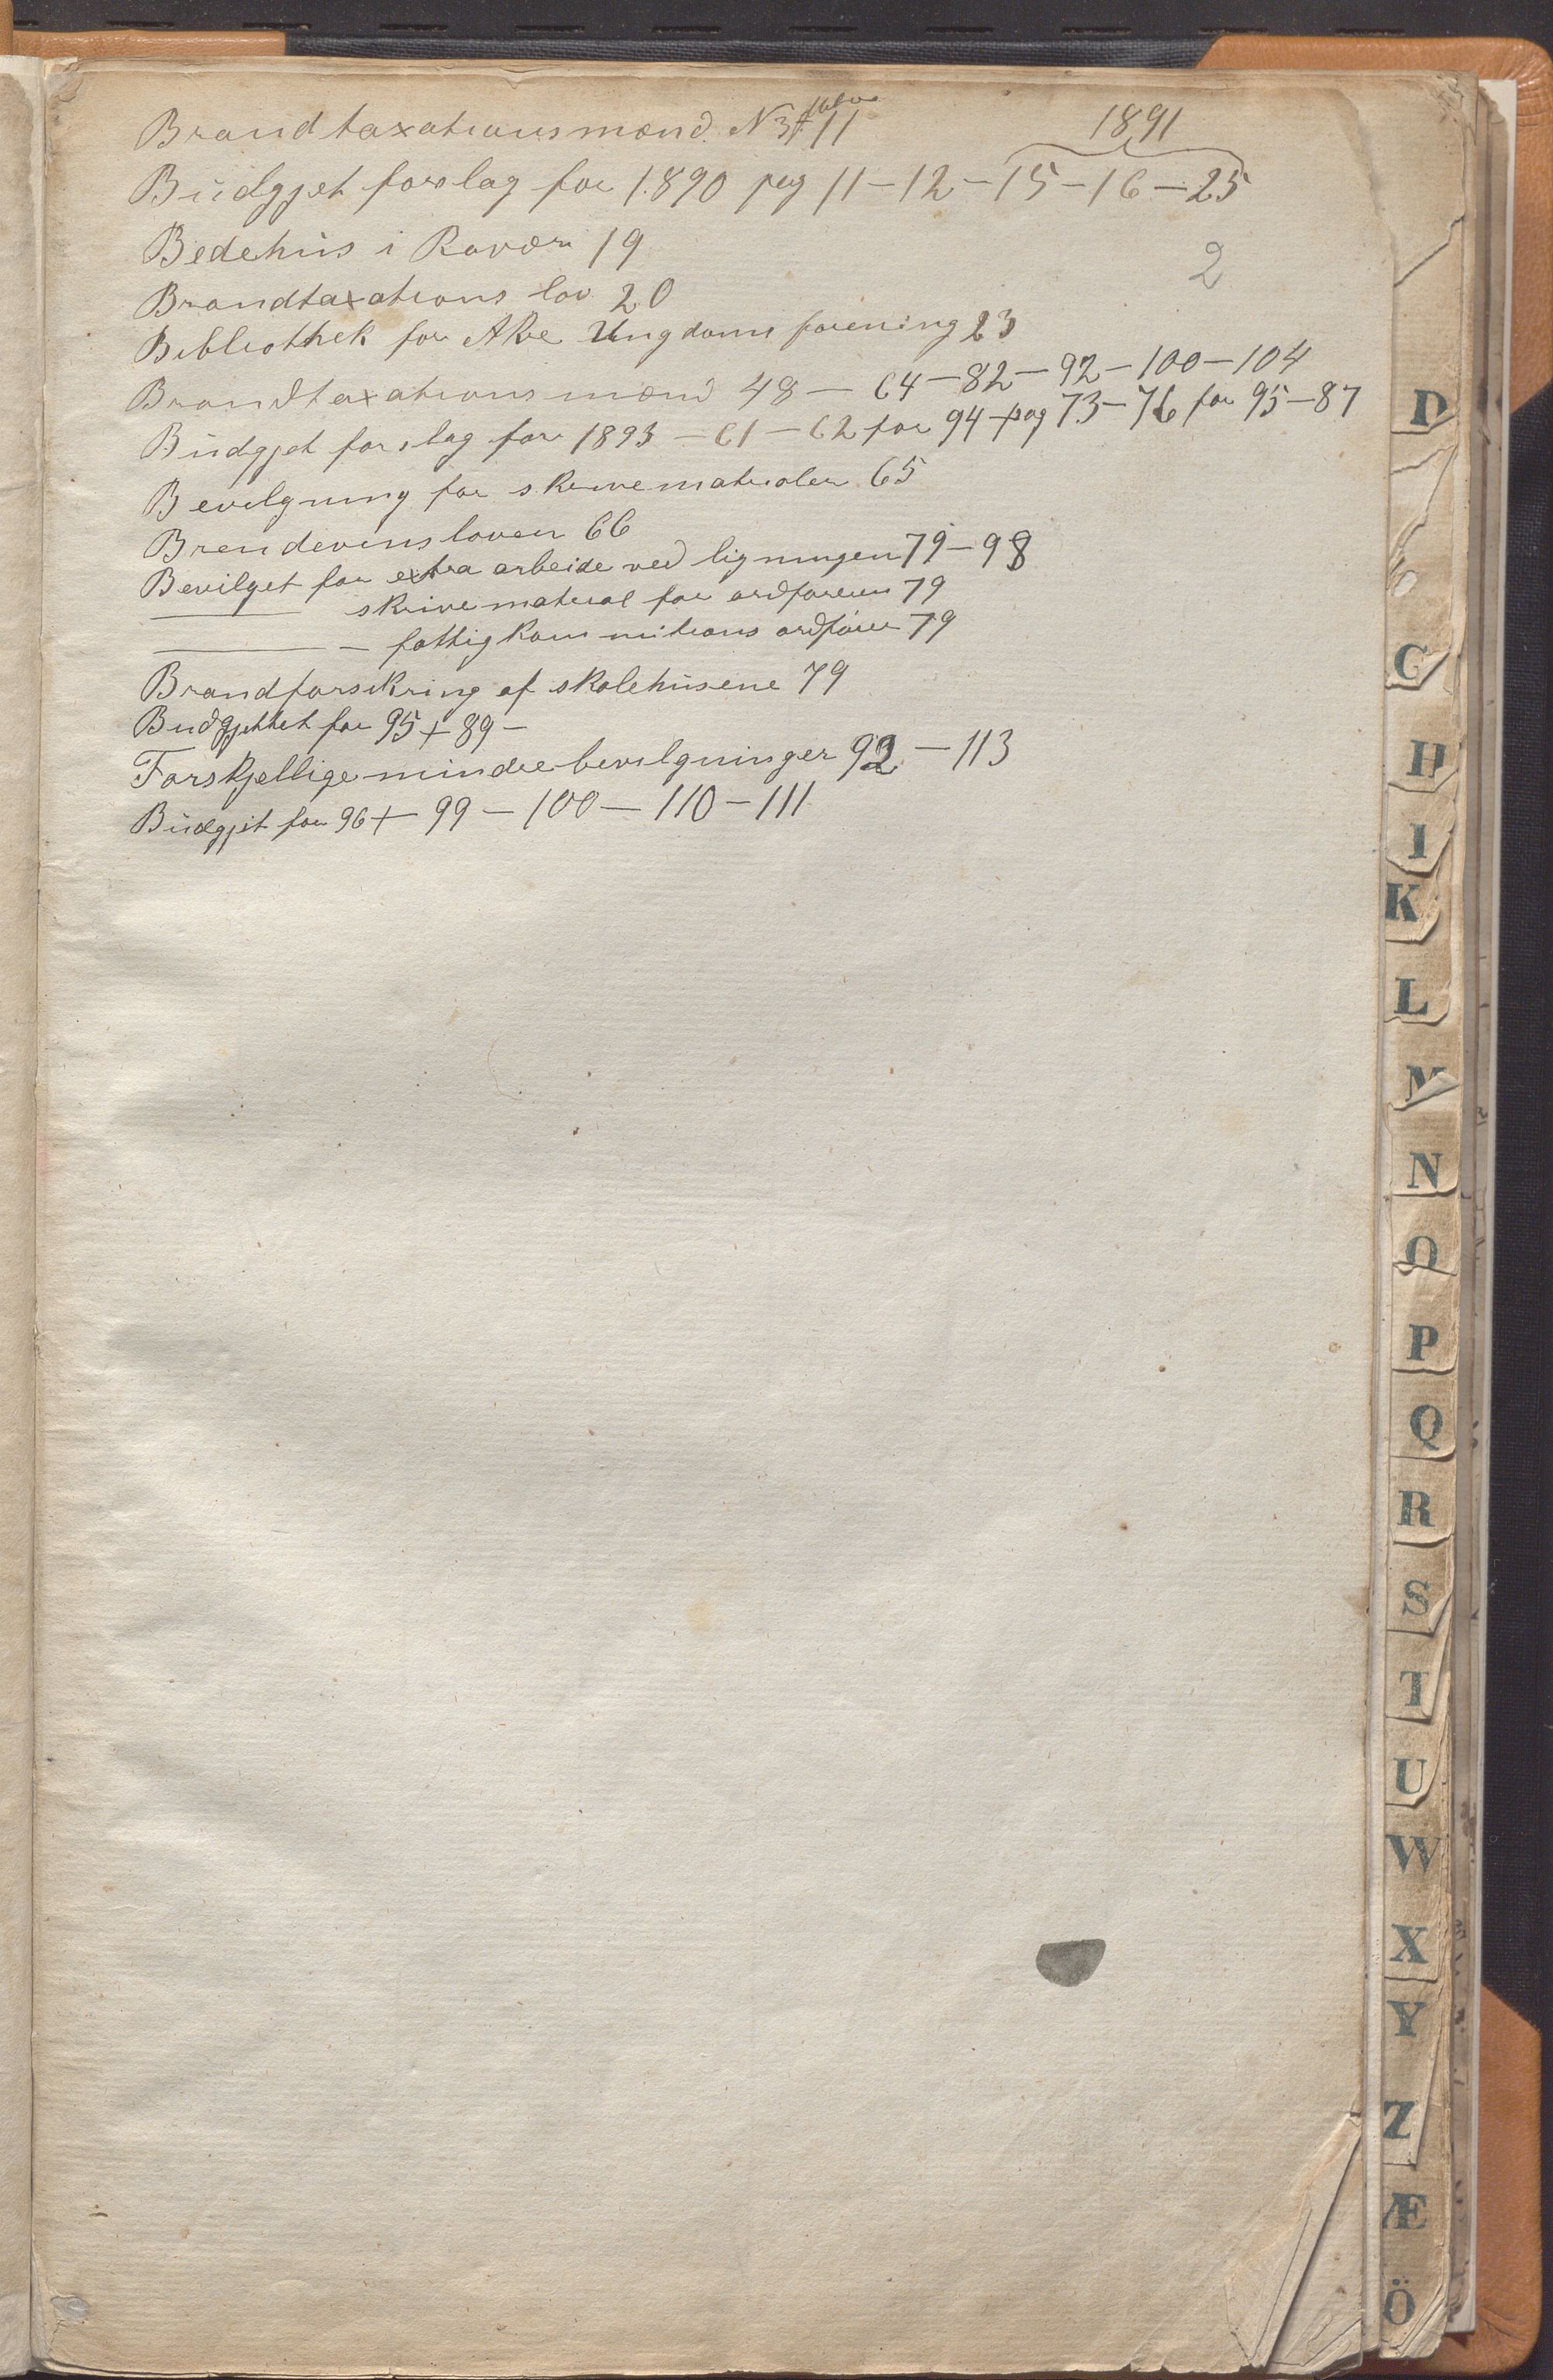 Brandtaxationsmænd. N 3 + 11
1891
Büdgjet forslag for 1890 pag 11 – 12 – 15 – 16 – 25
Bedehüs i Røvær 19
2
Brandtaxations lov 20
Bibliothek for Akre Ungdoms forening 23
Brandtaxationsmænd 48 – 64 – 82 – 92 – 100 – 104
Büdgjet forslag for 1893 – 61 – 62 for 94 pag 73 – 76 for 95 – 87
Bevilgning for skrivematerialer 65
Brendevinsloven 66
Bevilget for extra arbeide ved ligningen 79 – 98
——— skrivematerial for ordføreren 79
——— – fattigkommitions ordfører 79
Brandforsikring af skolehüsene 79
Budgjettet for 95 + 89 –
Forskjellige mindre bevilgninger 92 – 113
Büdgjet for 96 + – 99 – 100 – 110 – 111
D
C
H
I
K
L
M
N
O
P
Q
R
S
T
U
W
X
Y
Z
Æ
Ö